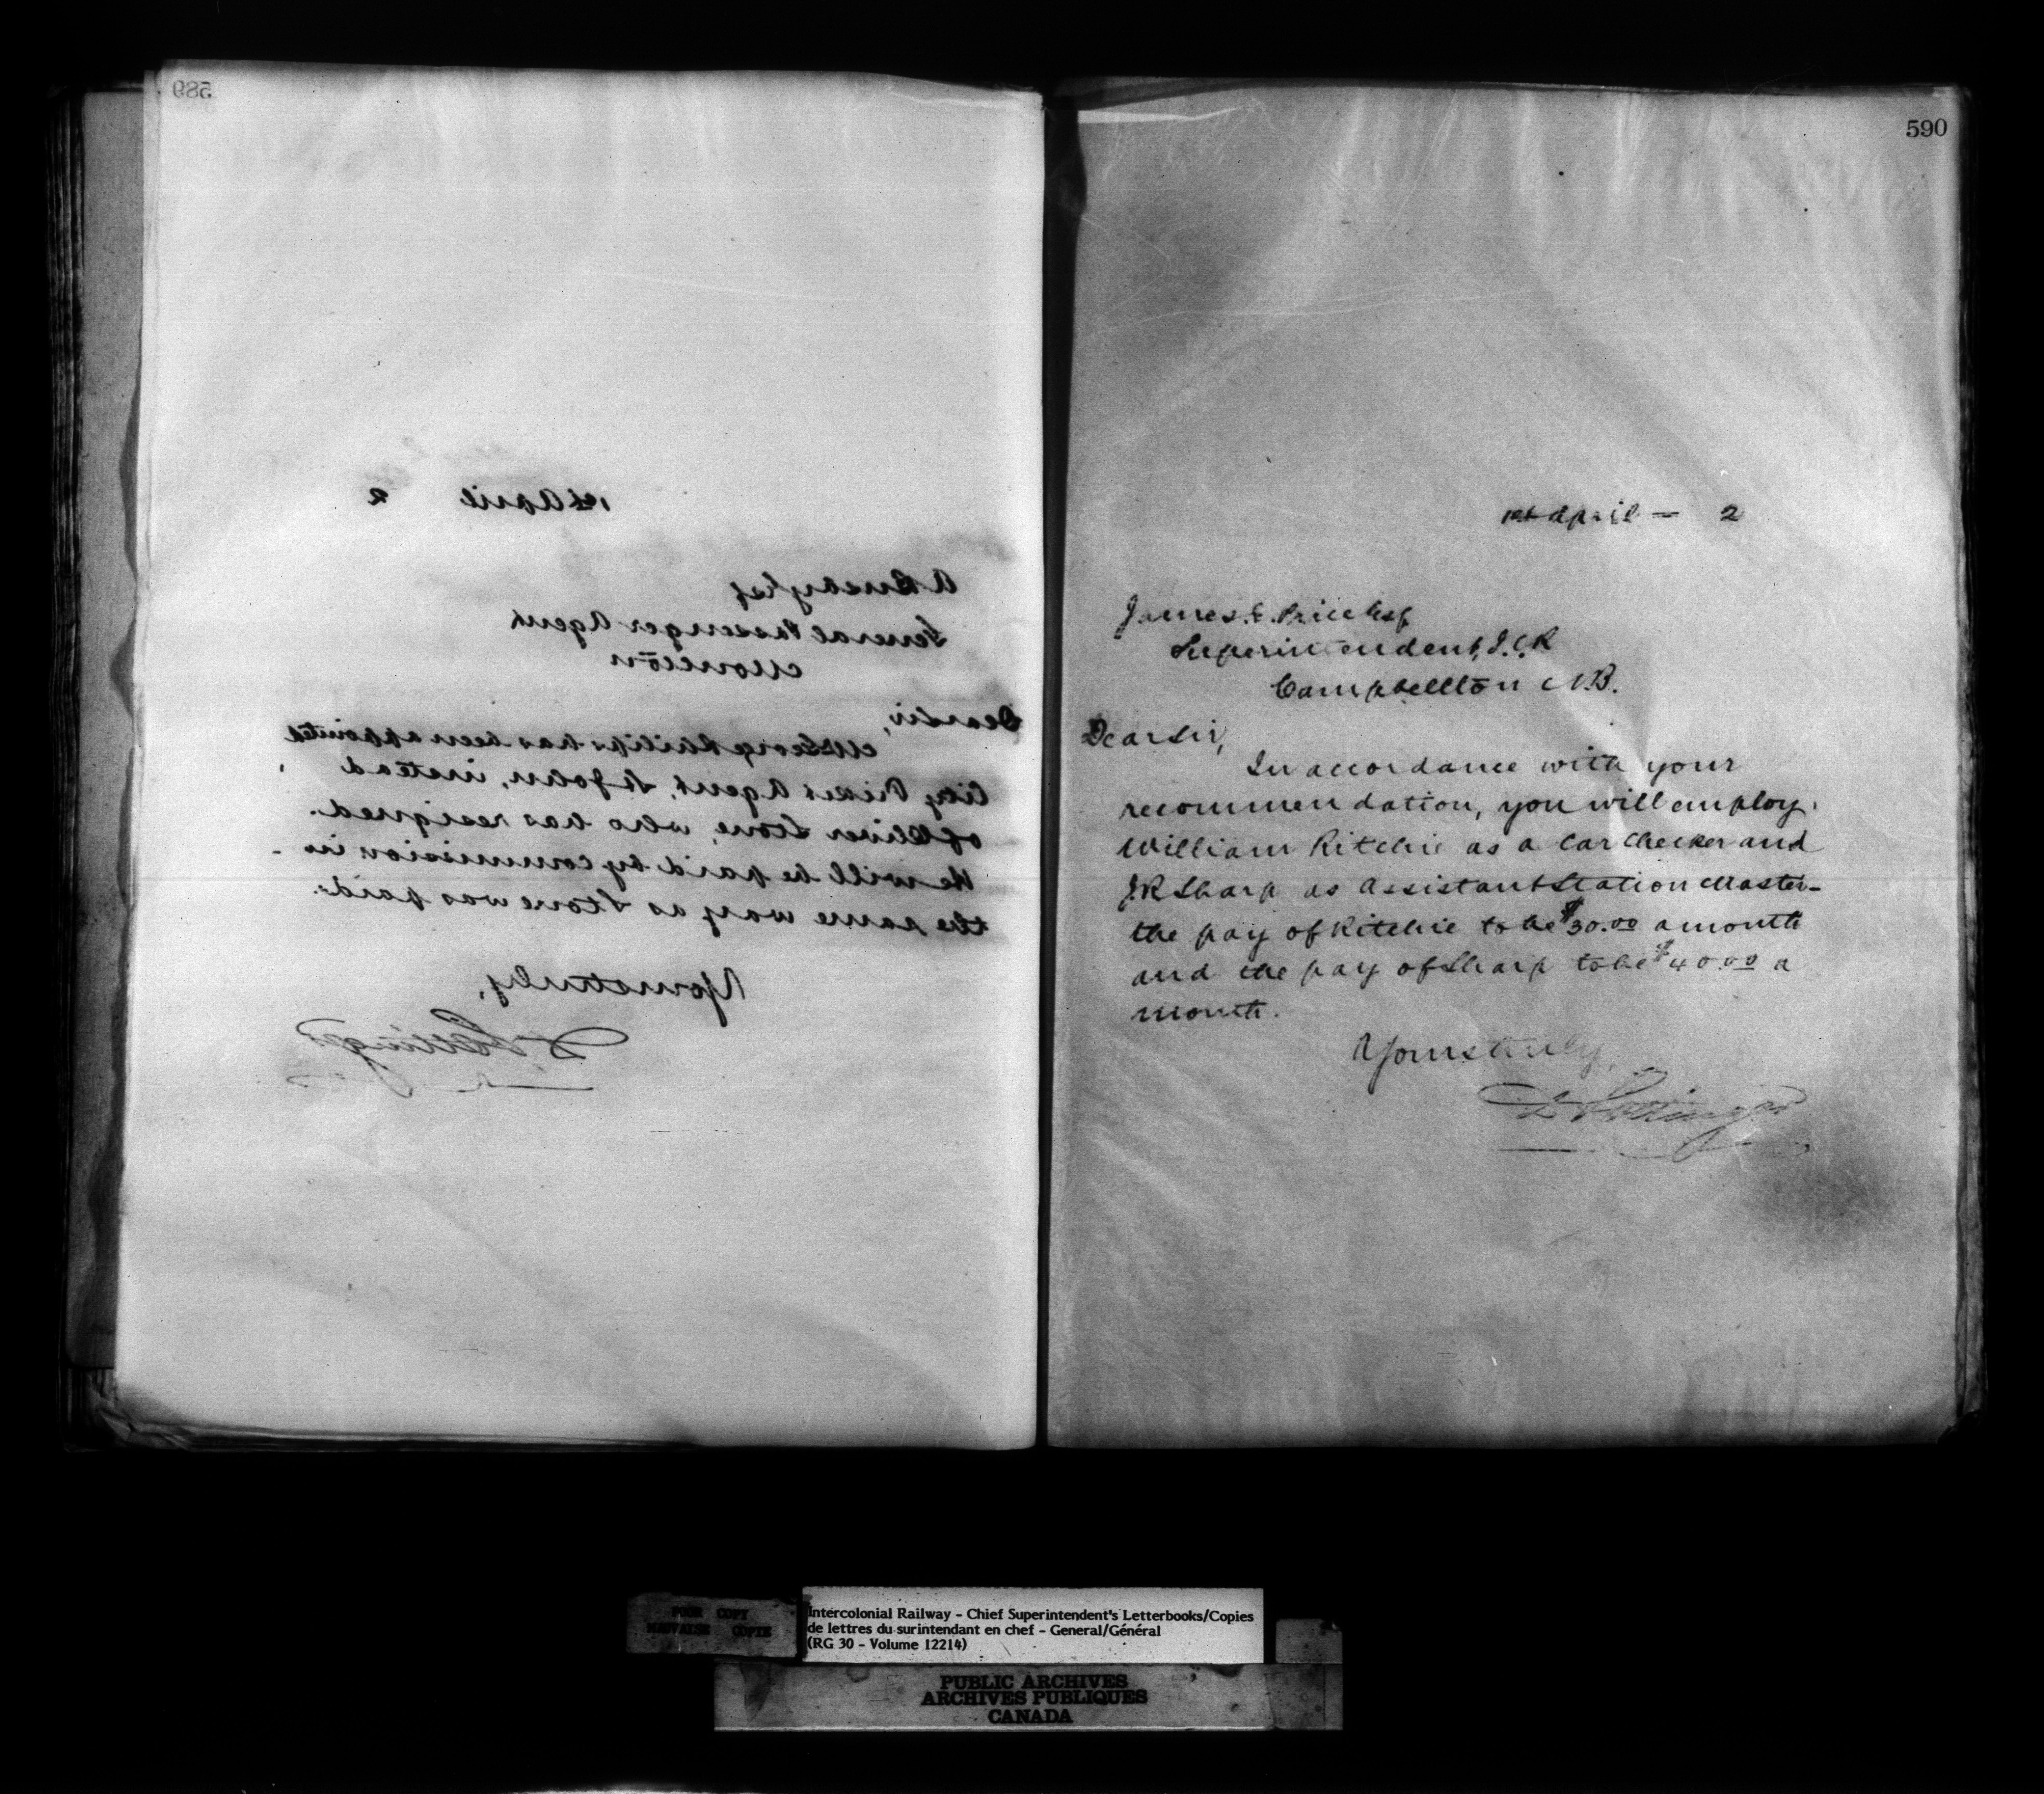 589
1st April 2
A Busby Esq
General Passenger Agent
Moncton
Dear Sir,
Mr George Philips has been appointed
City Ticket Agent, St John, instead
of Oliver Stone, who has resigned.
He will be paid by commission in
the same way as Stone was paid.
Yours truly,
D Pottinger
590
1st April — 2
James E. Price Esq
Superintendent, I.C.R
Campbellton N.B.
Dear Sir,
In accordance with your
recommendation, you will employ
William Ritchie as a Car Checker and
J.R Sharp as Assistant Station Master—
the pay of Ritchie to be $30.00 a month
and the pay of Sharp to be $40.00 a
month.
Yours truly,
D Pottinger
POOR COPY
MAUVAISE COPIE
Intercolonial Railway - Chief Superintendent's Letterbooks/Copies
de lettres du surintendant en chef - General/Général
(RG 30 - Volume 12214)
PUBLIC ARCHIVES
ARCHIVES PUBLIQUES
CANADA